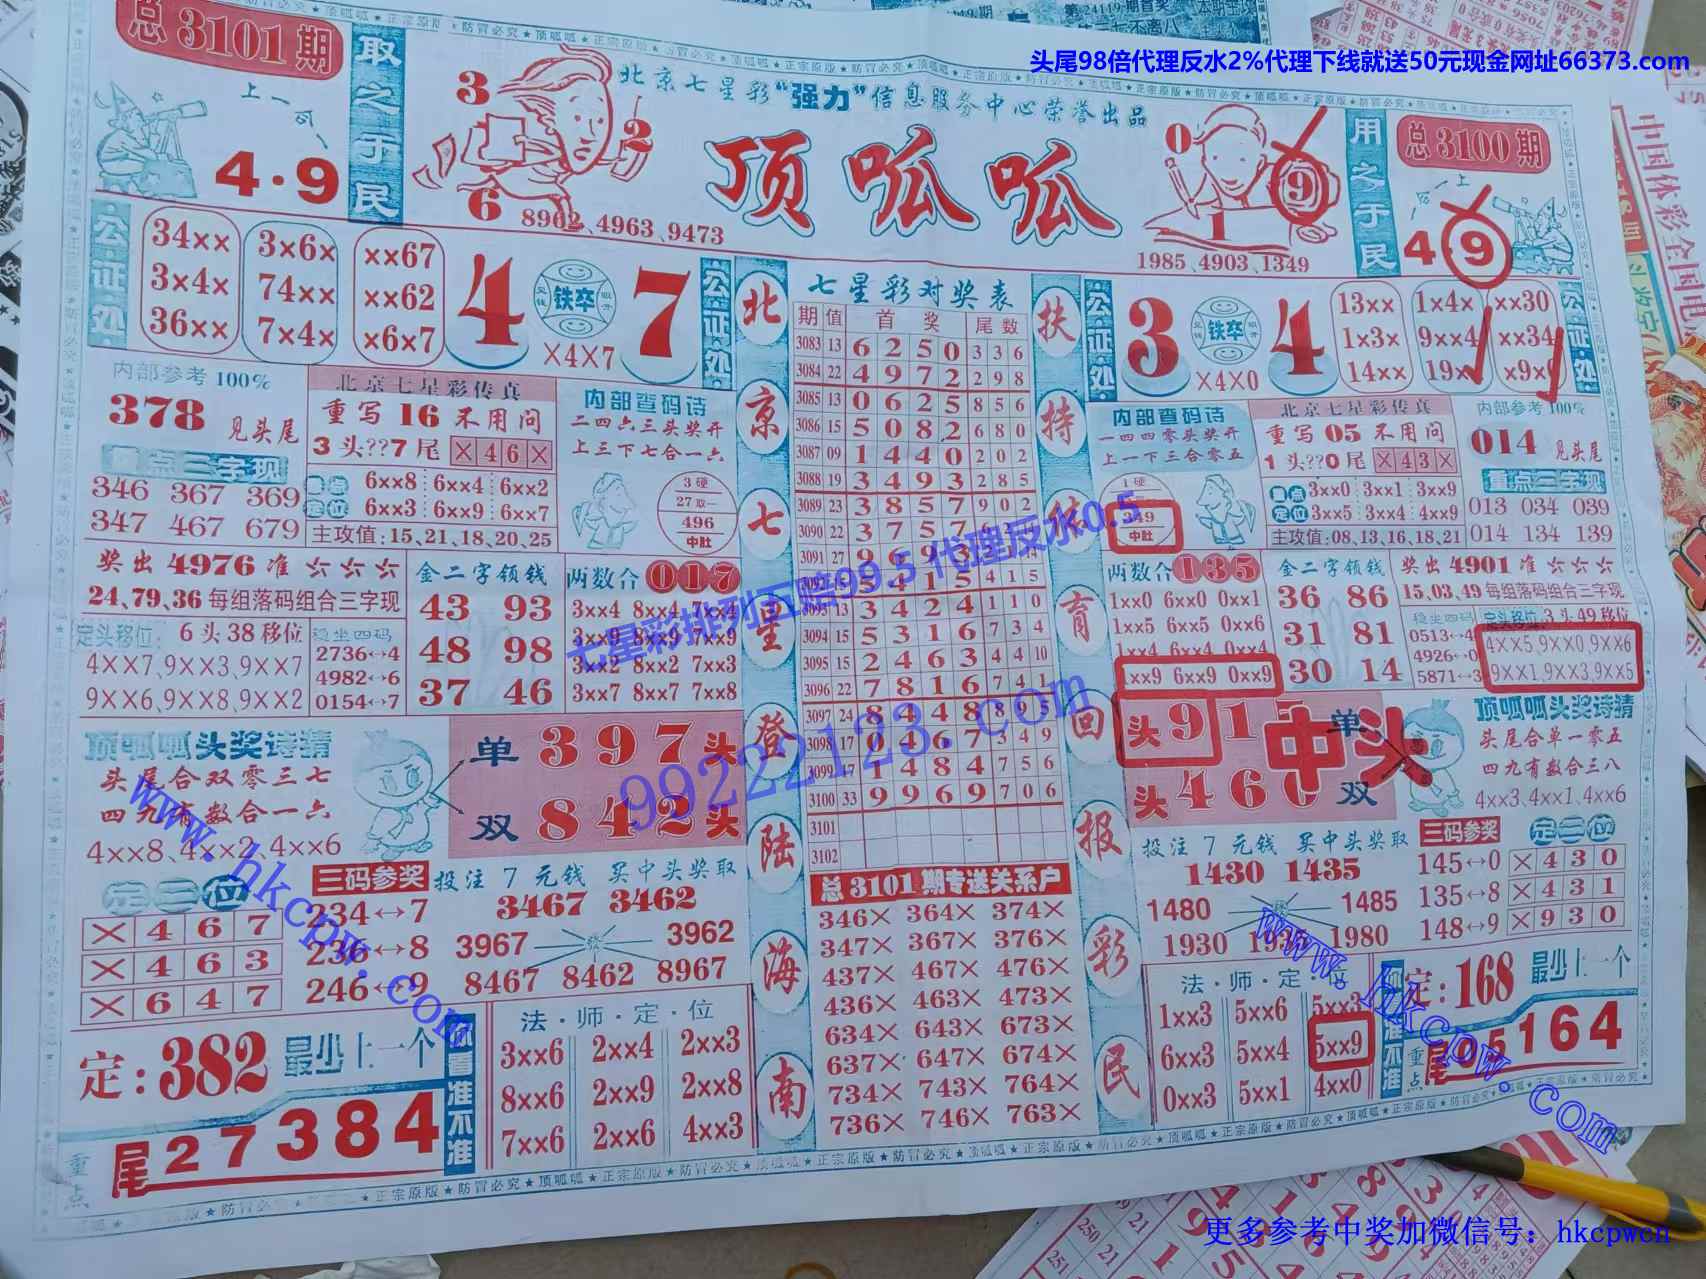 头尾98倍代理反水2%代理下线就送50元现金网址66373.com
总3101期
取之于民
上一间
4·9
3
2
6
8962、4963、9473
北京七星彩“强力”信息服务中心荣誉出品
顶呱呱
0
9
1
1985、4903、1349
用之于民
总3100期
4 9
公证处
34×× 3×6× ××67
3×4× 74×× ××62
36×× 7×4× ×6×7
4 铁卒 7
×4×7
公证处
内部参考 100%
378 见头尾
重点三字现
346 367 369
347 467 679
北京七星彩传真
重写 16 不用问
3头??7尾 ×46×
重点定位
6××8 6××4 6××2
6××3 6××9 6××7
主攻值:15,21,18,20,25
内部查码诗
二四六三头奖开
上三下七合一六
3硬
27取一
496
中肚
奖出 4976 准
24、79、36 每组落码组合三字现
定头移位: 6头38移位
4××7,9××3,9××7
9××6,9××8,9××2
稳坐四码
2736↔4
4982↔6
0154↔7
金二字领钱
43 93
48 98
37 46
两数合 017
3××4 8××4 7××4
3××9 8××9 7××9
3××2 8××2 7××3
3××7 8××7 7××8
顶呱呱头奖诗猜
头尾合双零三七
四九有数合一六
4××8、4××2、4××6
单 397 头
双 842 头
定三位
×467
×463
×647
三码参奖
234↔7
236↔8
246↔9
投注 7 元钱 买中头奖取
3467 3462
3967 3962
8467 8462 8967
定:382 最少上一个
尾27384
重点
你看准不准
法·师·定·位
3××6 2××4 2××3
8××6 2××9 2××8
7××6 2××6 4××3
北京七星登陆海南
七星彩对奖表
期 值 首奖 尾数
3083 13 6250 336
3084 22 4972 298
3085 13 0625 856
3086 15 5082 680
3087 09 1440 202
3088 19 3493 285
3089 23 3857 902
3090 22 3757
3091 27
3092 15 5415 415
3093 13 3424 110
3094 15 5316 734
3095 15 2463 4 4 10
3096 22 7816 741
3097 24 8448 895
3098 17 0467 349
3099 17 1484 756
3100 33 9969 706
3101
3102
总3101期专送关系户
346× 364× 374×
347× 367× 376×
437× 467× 476×
436× 463× 473×
634× 643× 673×
637× 647× 674×
734× 743× 764×
736× 746× 763×
扶持体育回报彩民
公证处
3 铁卒 4
×4×0
13×× 1×4× ××30
1×3× 9××4 ××34
14×× 19×× ×9×9
公证处
内部查码诗
一四四零头奖开
上一下三合零五
1硬
349
中肚
北京七星彩传真
重写 05 不用问
1头??0尾 ×43×
重点定位
3××0 3××1 3××9
3××5 3××4 4××9
主攻值:08,13,16,18,21
内部参考 100%
014 见头尾
重点三字现
013 034 039
014 134 139
两数合 135
1××0 6××0 0××1
1××5 6××5 0××6
1××4 6××4 0××4
1××9 6××9 0××9
金二字领钱
36 86
31 81
30 14
奖出 4901 准
15,03,49每组落码组合三字现
稳坐四码
0513↔4
4926↔0
5871↔3
定头移位: 3头49移位
4××5,9××0,9××6
9××1,9××3,9××5
头 91 单
头 460 双
中头
顶呱呱头奖诗猜
头尾合单一零五
四九有数合三八
4××3、4××1、4××6
投注 7 元钱 买中头奖取
1430 1435
1480 1485
1930 1935 1980
三码参奖
145↔0
135↔8
148↔9
定三位
×430
×431
×930
法·师·定·位
1××3 5××6 5××3
6××3 5××4 5××9
0××3 5××1 4××0
定:168 最少上一个
重点
尾05164
七星彩排列五赔99.5 代理反水0.5
99222123.com
www.hkcpw.com
www.hkcpw.com
更多参考中奖加微信号:hkcpwcn